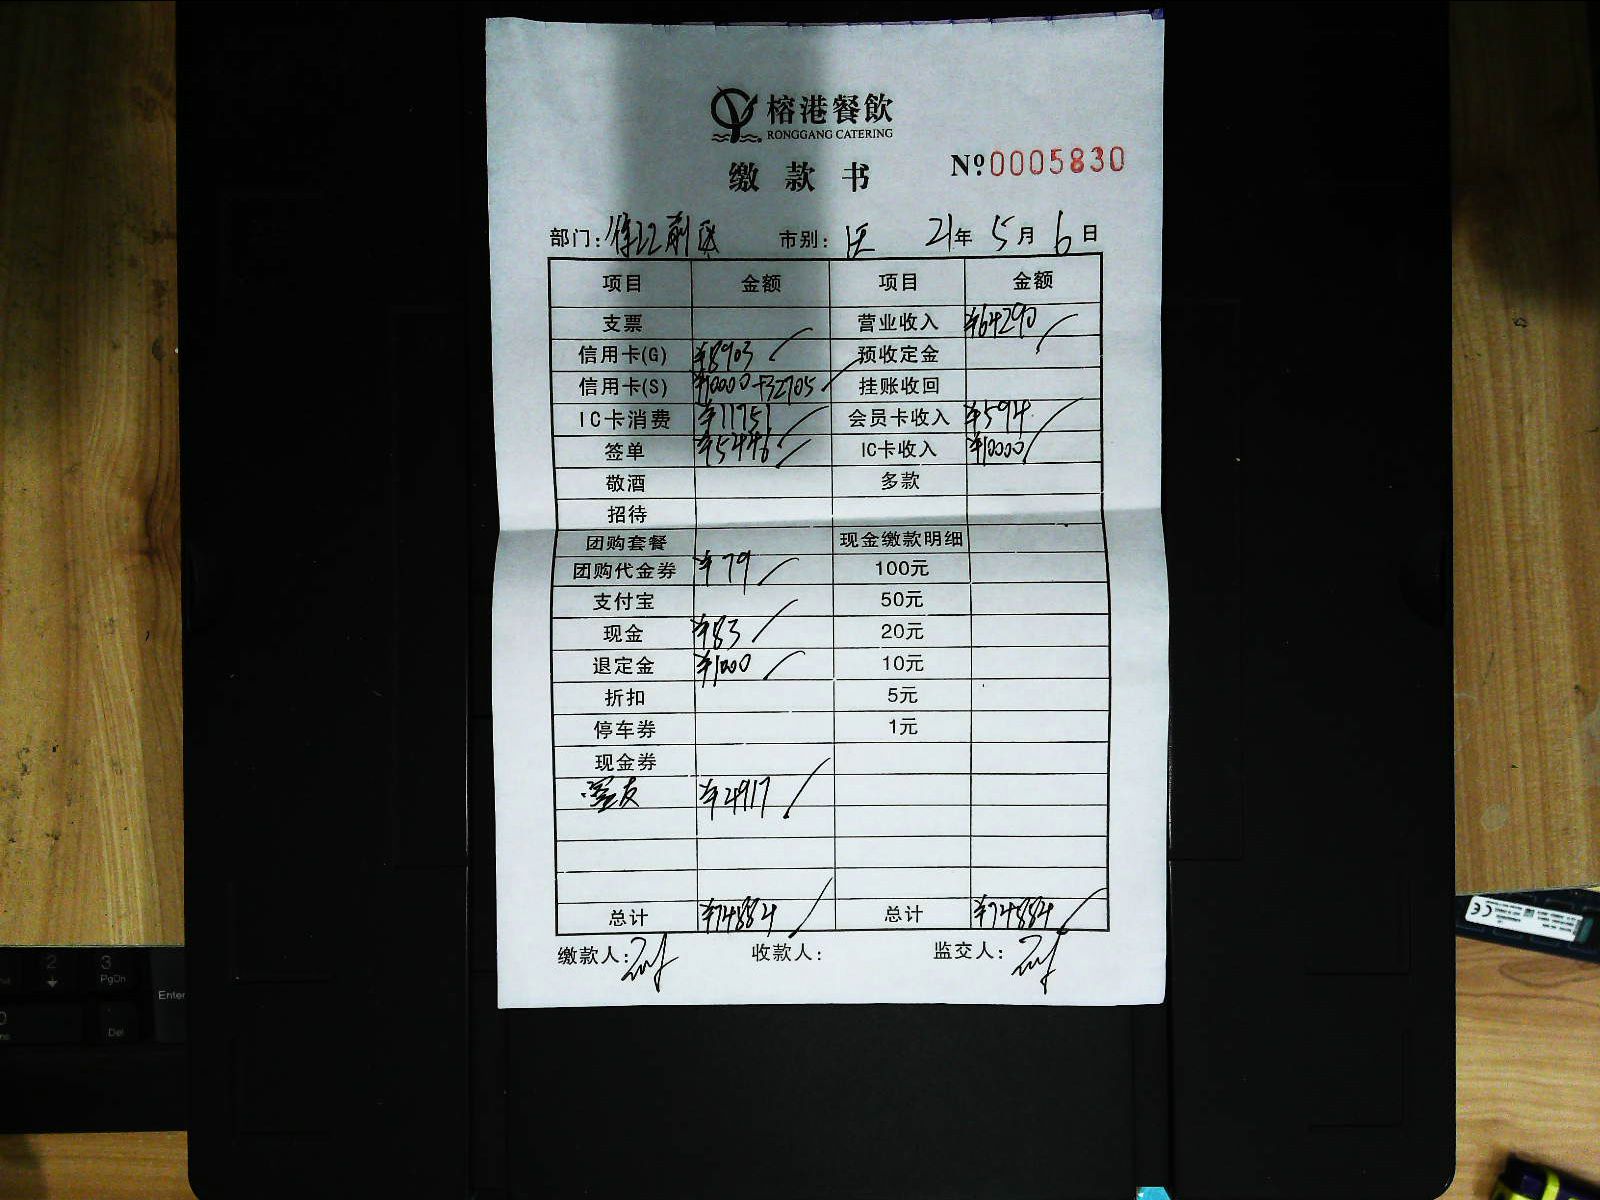 榕港餐飲
RONGGANG CATERING
缴款书
Nº 0005830
部门: 市别: 21年 5月 6日
项目 金额 项目 金额
支票 营业收入 ¥64290
信用卡(G) ¥8903 预收定金
信用卡(S) ¥10000+32705 挂账收回
IC卡消费 ¥11751 会员卡收入 ¥594
签单 ¥5446 IC卡收入 ¥10000
敬酒 多款
招待
团购套餐 现金缴款明细
团购代金券 ¥79 100元
支付宝 50元
现金 ¥83 20元
退定金 ¥1000 10元
折扣 5元
停车券 1元
现金券
¥4917
总计 ¥74884 总计 ¥74884
缴款人: 收款人: 监交人:
2
3
PgDn
Enter
Del
CE